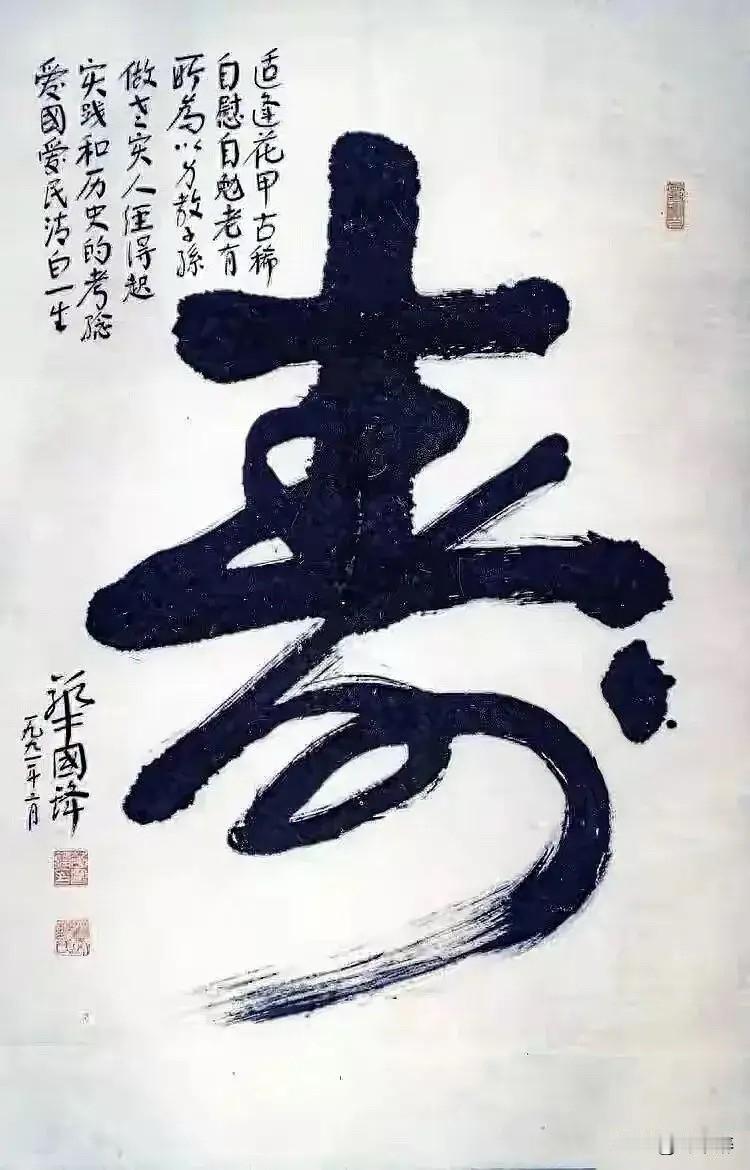 寿
适逢花甲古稀
自慰自勉老有
所為以方教子孫
做老实人经得起
实践和历史的考验
爱國爱民清白一生
華國锋
一九九一年二月